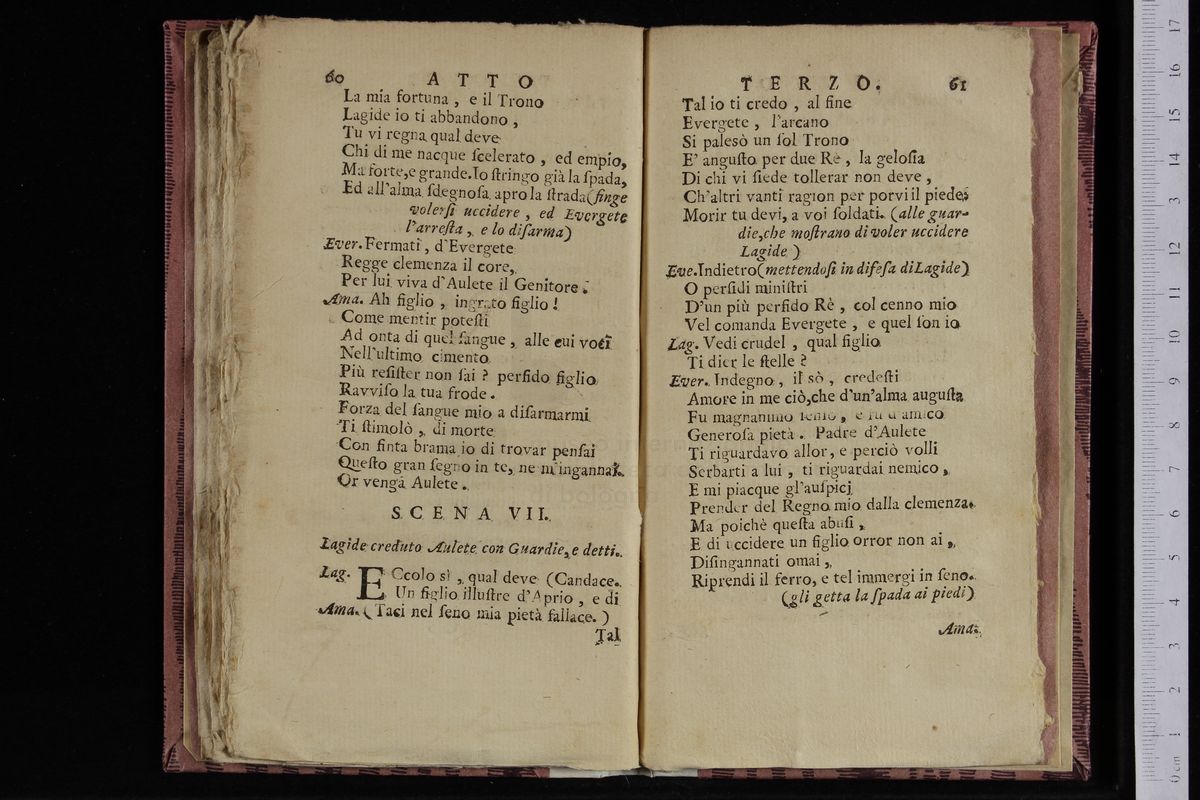 60 ATTO
La mia fortuna , e il Trono
Lagide io ti abbandono ,
Tu vi regna qual deve
Chi di me nacque ſcelerato , ed empio,
Ma forte,e grande.Io ſtringo già la ſpada,
Ed all'alma ſdegnoſa apro la ſtrada(finge
volerſi uccidere , ed Evergete
l'arreſta , e lo diſarma)
Ever. Fermati , d'Evergete
Regge clemenza il core,
Per lui viva d'Aulete il Genitore.
Ama. Ah figlio , ingrato figlio !
Come mentir poteſti
Ad onta di quel ſangue , alle cui voci
Nell'ultimo cimento
Più reſiſter non ſai ? perfido figlio
Ravviſo la tua frode.
Forza del ſangue mio a diſarmarmi
Ti ſtimolò , di morte
Con finta brama io di trovar penſai
Queſto gran ſegno in te, ne m'ingannai.
Or venga Aulete.
SCENA VII.
Lagide creduto Aulete con Guardie, e detti.
Lag. ECcolo sì , qual deve (Candace.
Un figlio illuſtre d'Aprio , e di
Ama. ( Taci nel ſeno mia pietà fallace. )
Tal
TERZO. 61
Tal io ti credo , al fine
Evergete , l'arcano
Si palesò un ſol Trono
E' anguſto per due Rè , la geloſia
Di chi vi ſiede tollerar non deve ,
Ch'altri vanti ragion per porvi il piede;
Morir tu devi, a voi ſoldati. (alle guar-
die,che moſtrano di voler uccidere
Lagide )
Eve. Indietro(mettendoſi in difeſa di Lagide)
O perfidi miniſtri
D'un più perfido Rè , col cenno mio
Vel comanda Evergete , e quel ſon io
Lag. Vedi crudel , qual figlio
Ti dier le ſtelle ?
Ever. Indegno , il sò , credeſti
Amore in me ciò,che d'un'alma auguſta
Fu magnanimo , e fu d'amico
Generoſa pietà . Padre d'Aulete
Ti riguardavo allor, e perciò volli
Serbarti a lui , ti riguardai nemico ,
E mi piacque gl'auſpici
Prender del Regno mio dalla clemenza.
Ma poichè queſta abuſi ,
E di uccidere un figlio orror non ai ,
Diſingannati omai ,
Riprendi il ferro, e tel immergi in ſeno.
(gli getta la ſpada ai piedi)
Ama.